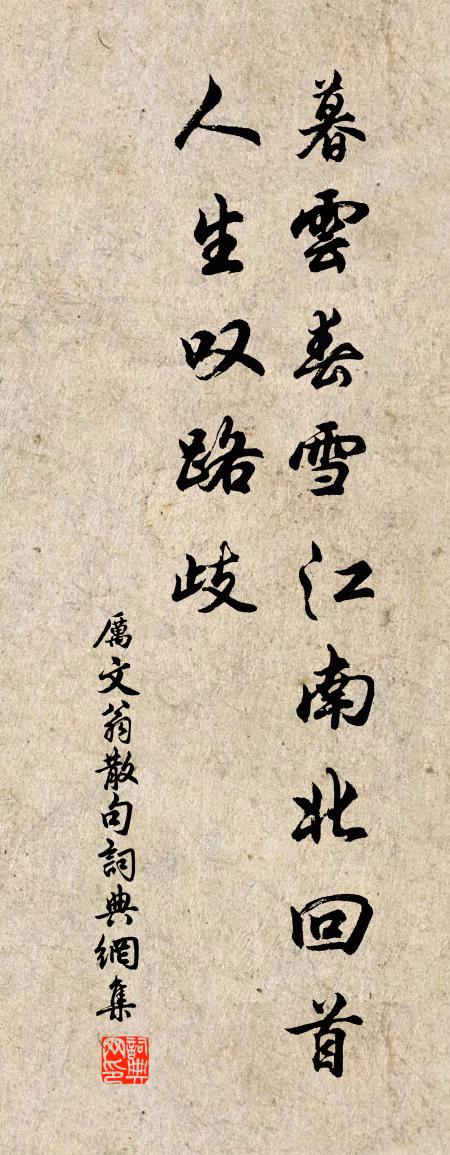 暮雲春雪江南北回首
人生叹路歧
厲文翁散句詞典網集
詞典网印